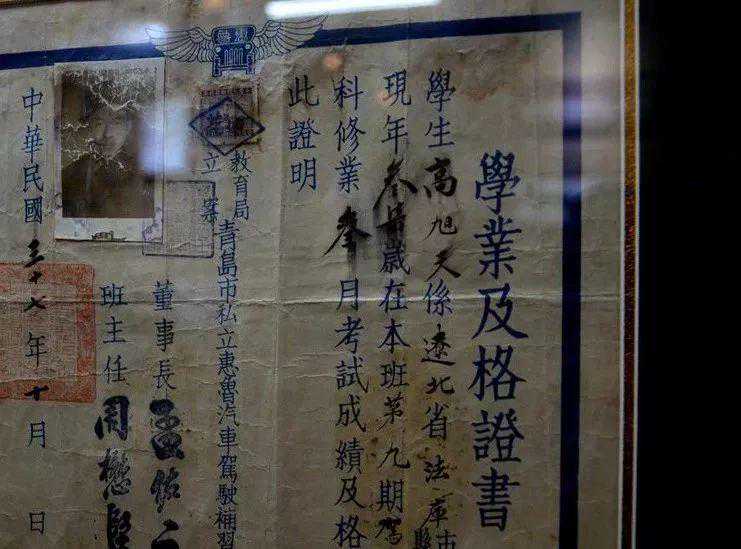 學業及格證書
學生高旭天係遼北省法庫市縣
現年叁歲在本班第九期駕
科修業參月考試成績及格
此證明
教育局
立案
青島市私立惠魯汽車駕駛補習
董事長
班主任周懋
中華民國三十七年十月 日